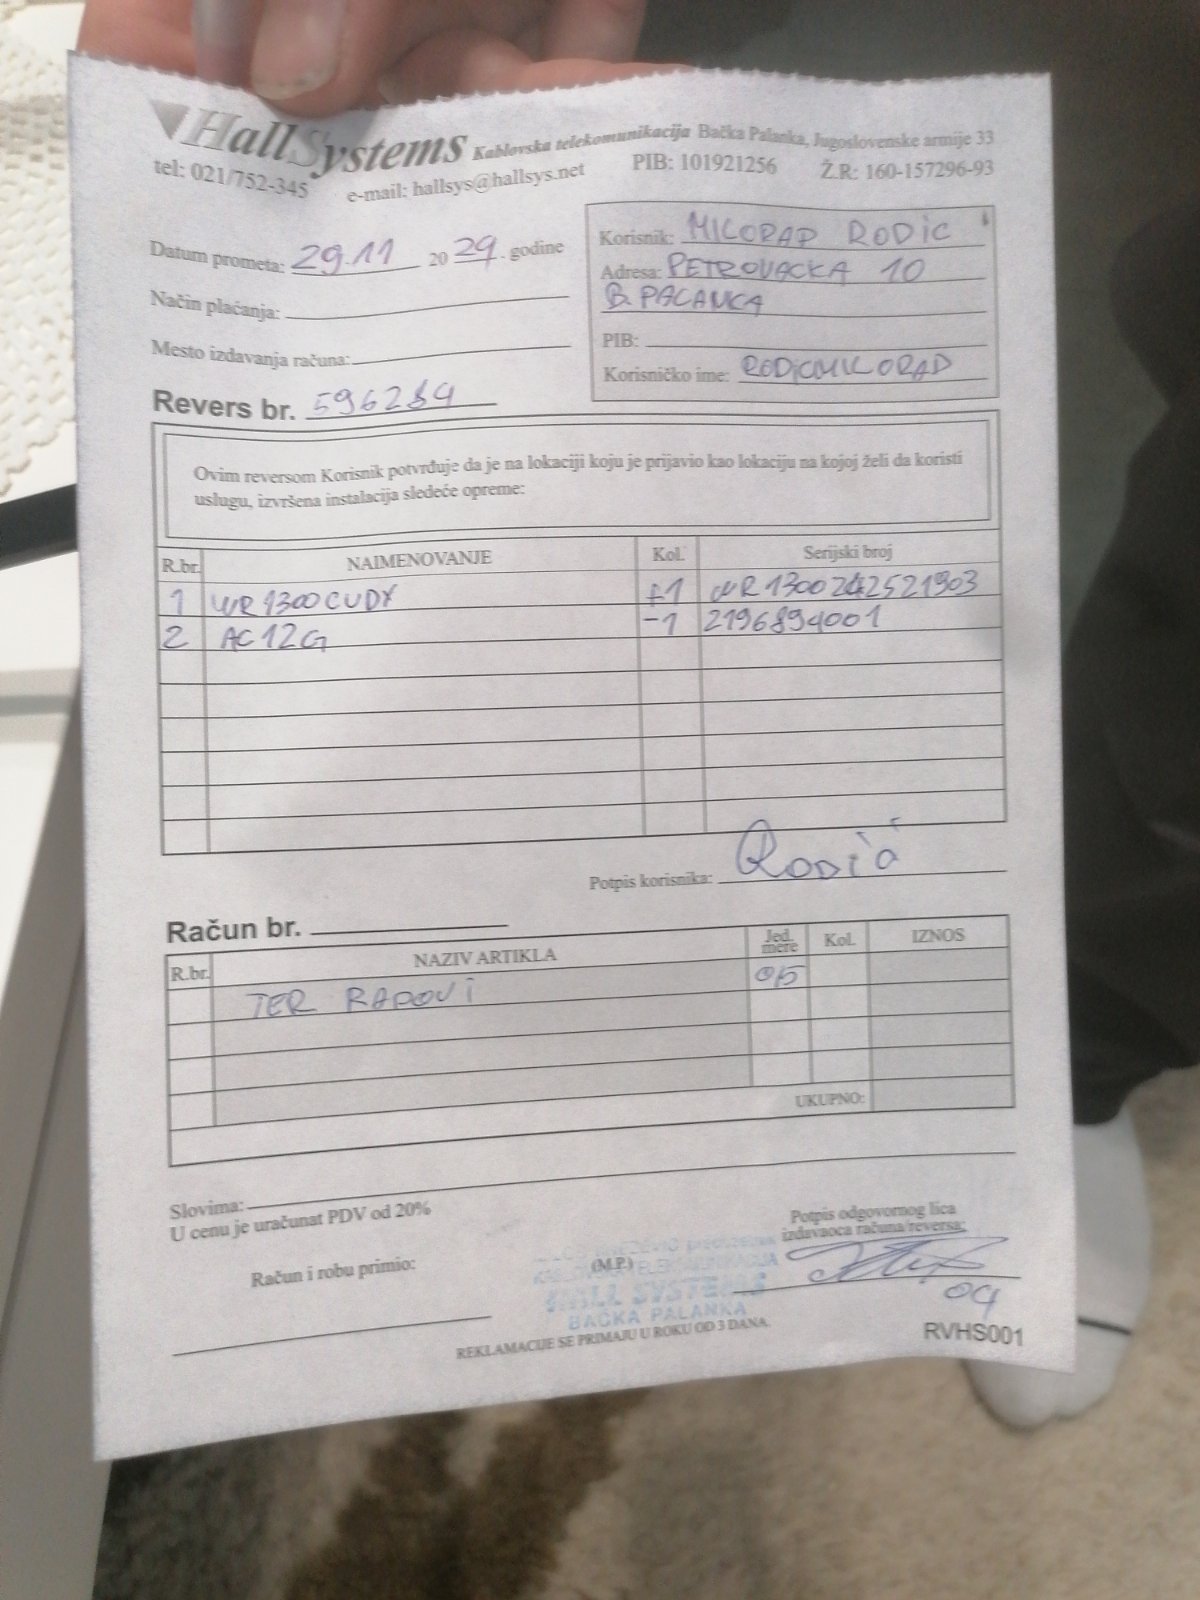 HallSystems Kablovska telekomunikacija Bačka Palanka, Jugoslovenske armije 33
tel: 021/752-345 e-mail: hallsys@hallsys.net PIB: 101921256 Ž.R: 160-157296-93
Datum prometa: 29.11 2024. godine
Način plaćanja:
Mesto izdavanja računa:
Korisnik: MILORAD RODIC
Adresa: PETROVACKA 10
B. PALANKA
PIB:
Korisničko ime: RODICMILORAD
Revers br. 596284
Ovim reversom Korisnik potvrđuje da je na lokaciji koju je prijavio kao lokaciju na kojoj želi da koristi
uslugu, izvršena instalacija sledeće opreme:
R.br. NAIMENOVANJE Kol. Serijski broj
1 WR1300CUDY +1 WR1300242521903
2 AC12G -1 2196894001
Potpis korisnika: Rodić
Račun br.
R.br. NAZIV ARTIKLA Jed. mere Kol. IZNOS
TER RADOVI
UKUPNO:
Slovima:
U cenu je uračunat PDV od 20%
Potpis odgovornog lica
izdavaoca računa/reversa:
Račun i robu primio:
(M.P.)
HALL SYSTEMS
BAČKA PALANKA
04
REKLAMACIJE SE PRIMAJU U ROKU OD 3 DANA.
RVHS001